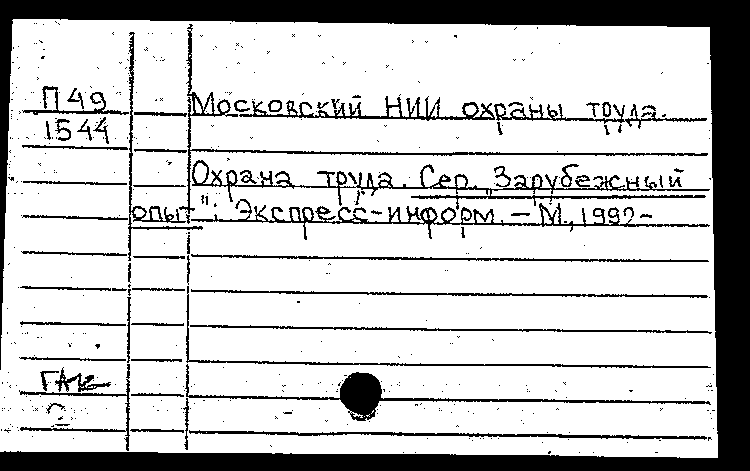 П49
1544
Московский НИИ охраны труда.
Охрана труда. Сер. „Зарубежный
опыт": Экспресс-информ. — М., 1992-